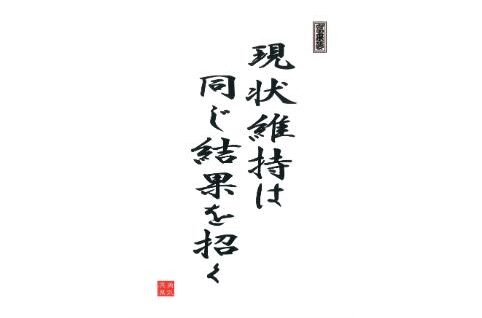 現状維持は
同じ結果を招く